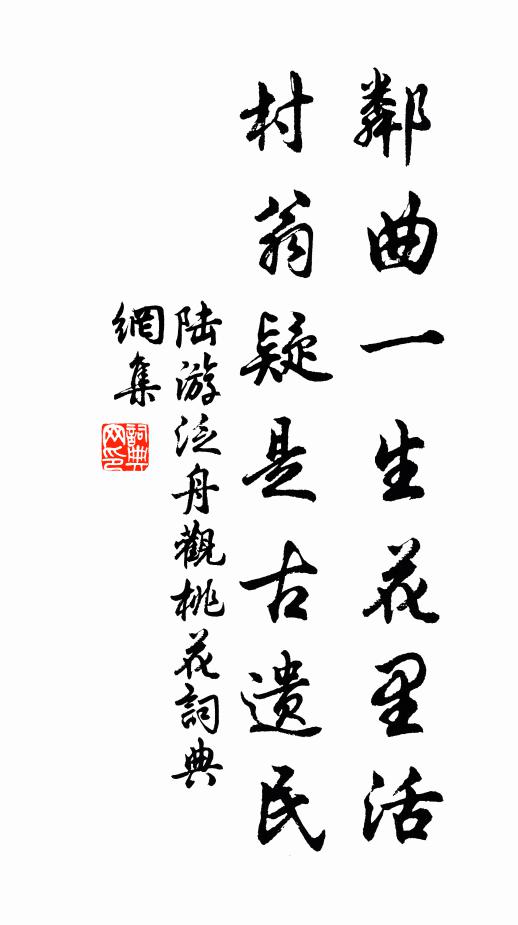 鄰曲一生花里活
村翁疑是古遺民
陆游泛舟觀桃花詞典
網集
詞典
网印